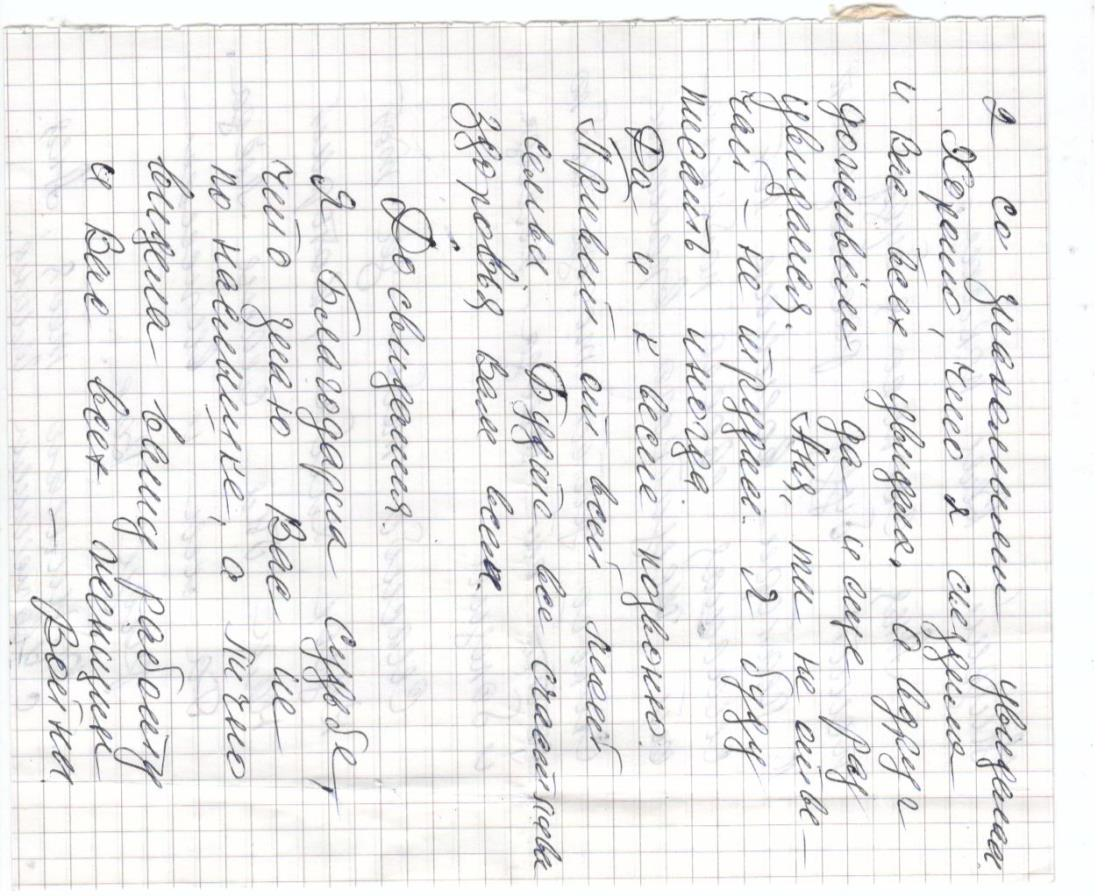 2 со знакомыми увиделась.
Хорошо, что я съездила
и Вас всех увидела. А вдруг
доживём да и еще раз
увидимся. Аня, ты не отве-
чай – не трудись. Я буду
писать иногда.
Да и к весне позвоню.
Привет от всей моей
семьи. Будьте все счастливы
Здоровья Вам всем.
До свидания.
Я Благодарна Судьбе,
что знаю Вас не
по наслышке, а лично
видела вашу работу
и Вас всех женщин
– Войны